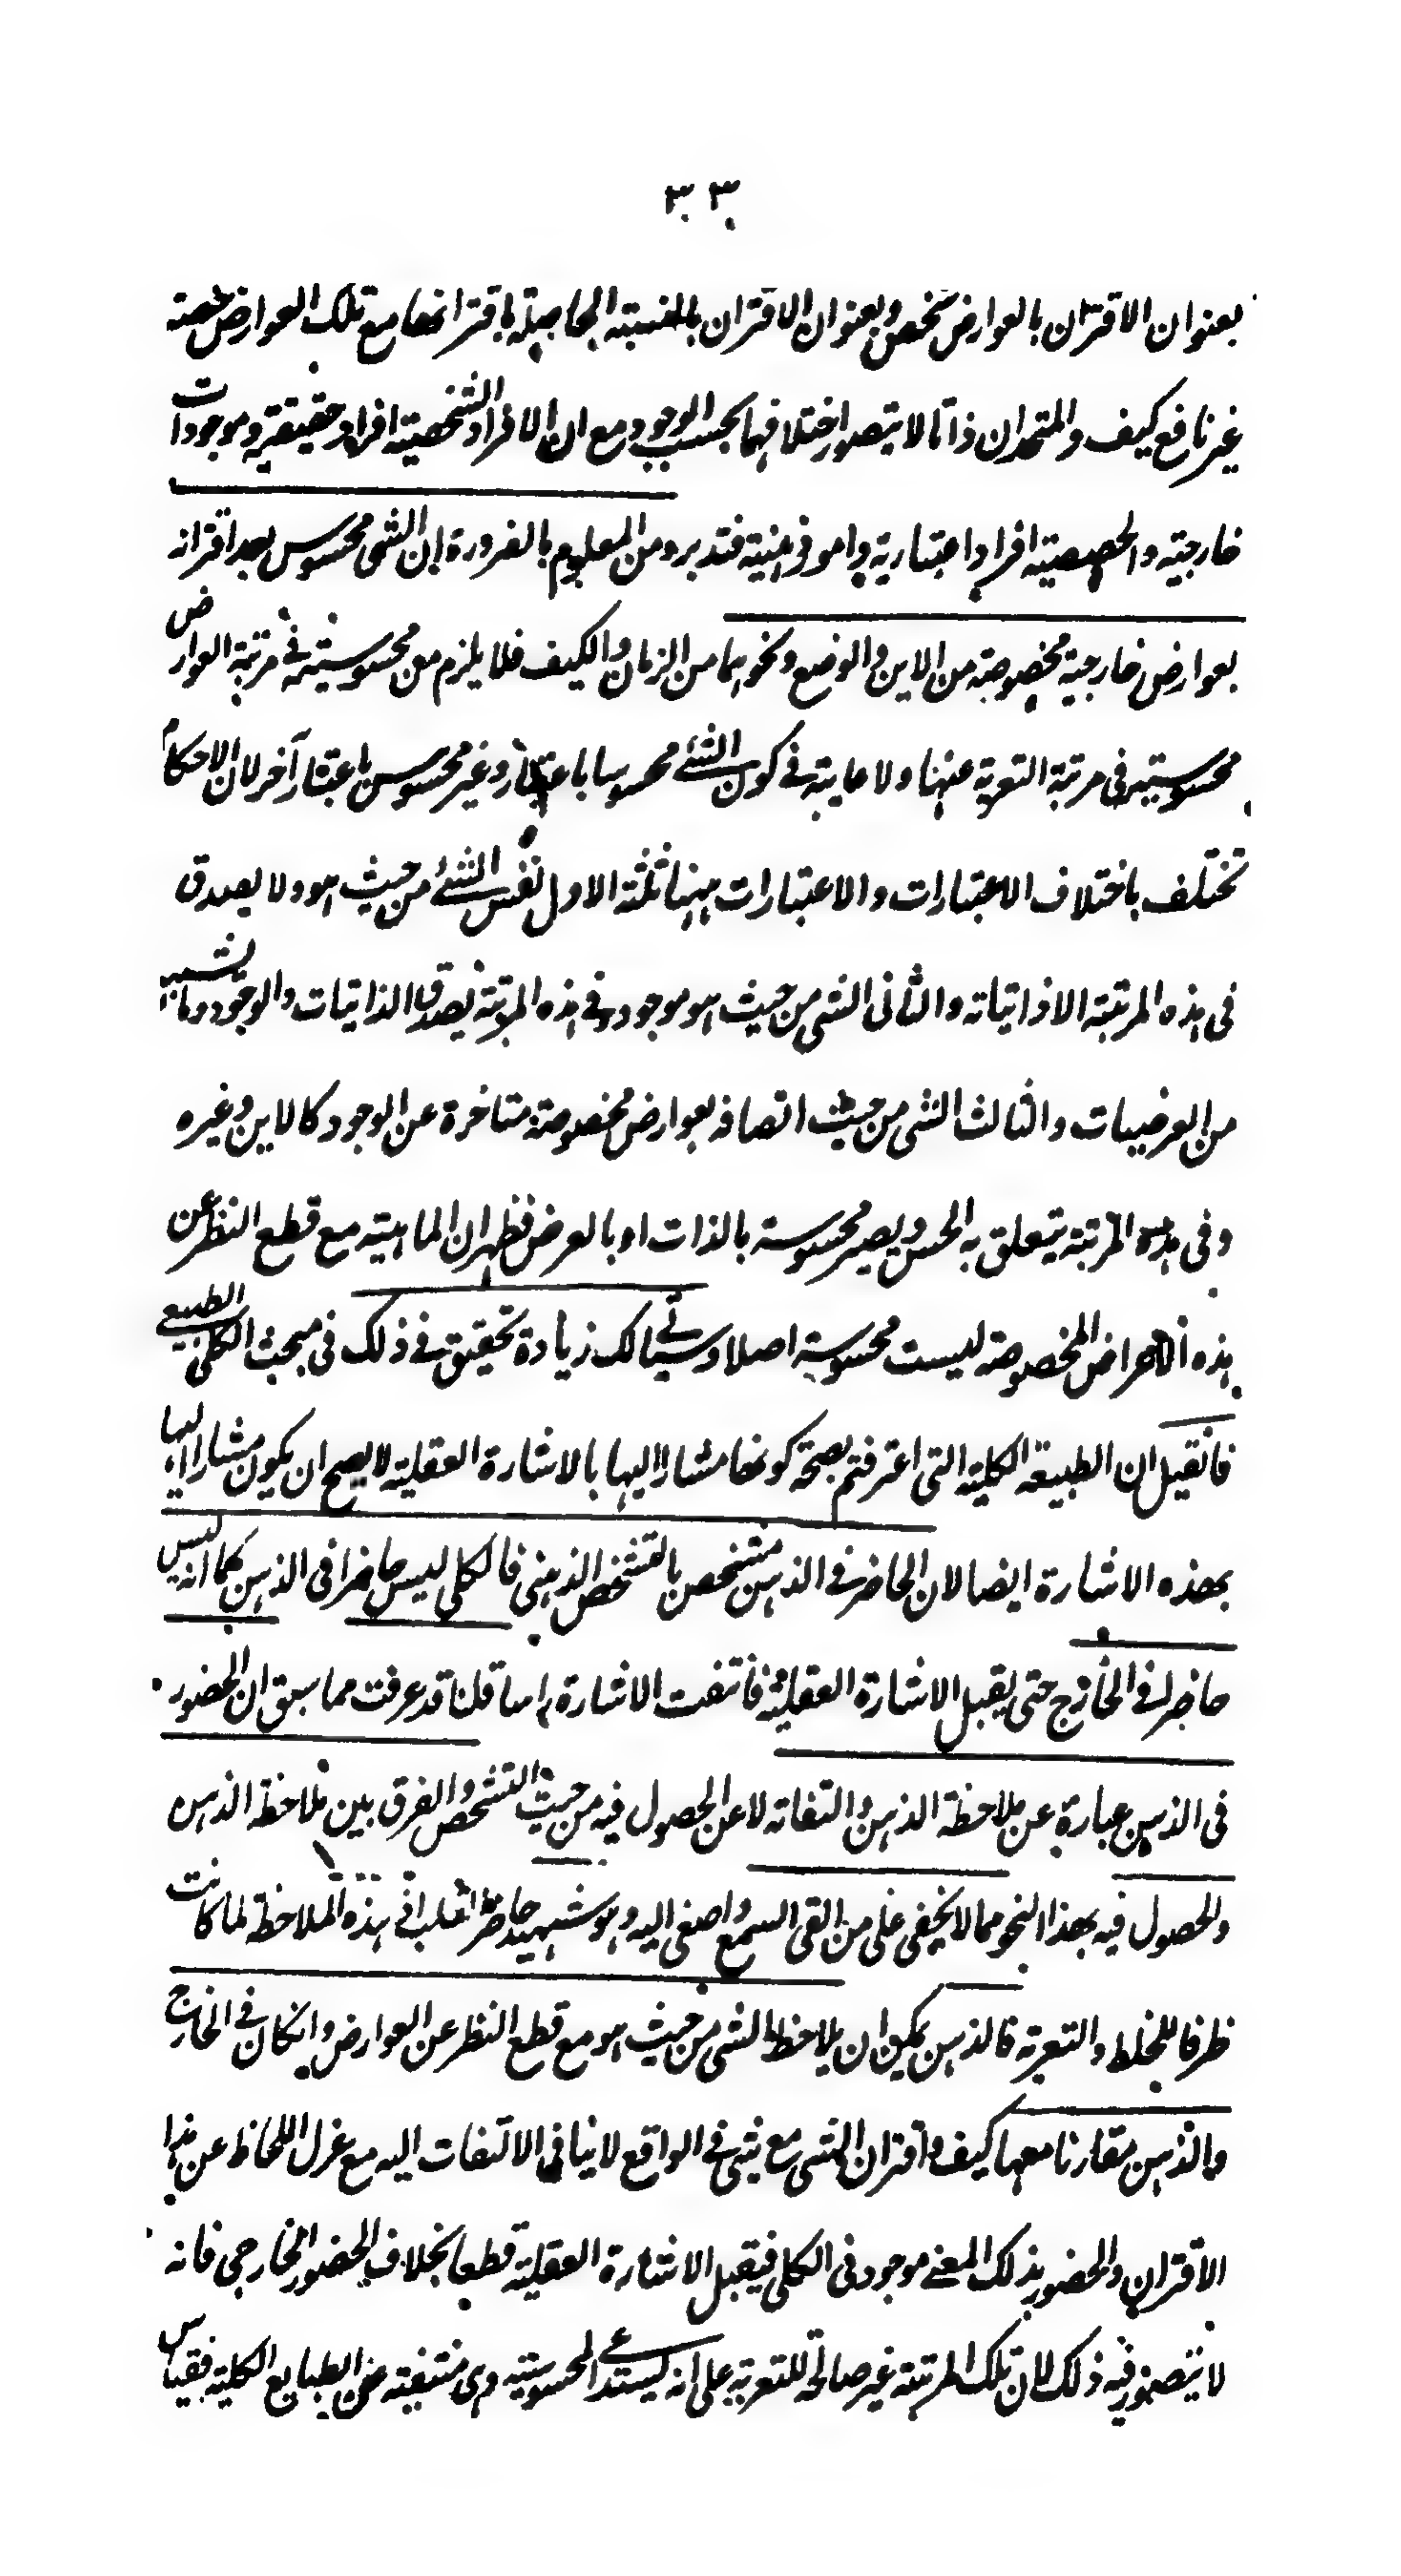 ٣٣
بعنوان الاقتران بالعوارض شخص وبعنوان الاقتران بالنسبته الحاصلة باقترانها مع تلك العوارض حصته
غير نافع كيف والمتحدان ذاتا لا يتصور اختلافهما بحسب الوجود مع ان الافراد الشخصيته افراد حقيقية وموجودات
خارجيته والحصصيته افراد اعتبارية وامور ذهنية فتدبر ومن المعلوم بالضرورة ان الشى محسوس بعد اقترانه
بعوارض خارجية مخصوصة من الاين والوضع ونحوهما من الزمان والكيف فلا يلزم من محسوسيته فى مرتبة العوارض
محسوسيته فى مرتبة التعرية عنها ولا غاية فى كون الشئ محسوسا باعتبار وغير محسوس باعتبار آخر لان الاحكام
تختلف باختلاف الاعتبارات والاعتبارات ههنا ثلثة الاول نفس الشئ من حيث هو ولا يصدق
فى هذه المرتبة الا ذاتياته والثانى الشى من حيث هو موجود وفى هذه المرتبة يصدق الذاتيات والوجود وما
من العرضيات والثالث الشى من حيث اتصافه بعوارض مخصوصة متاخرة عن الوجود كالاين وغيره
وفى هذه المرتبة يتعلق به الحس ويصير محسوسة بالذات او بالعرض فظهر ان الماهيته مع قطع النظر عن
هذه الاعراض المخصوصة ليست محسوسة اصلا وسياتى لك زيادة تحقيق فى ذلك فى مبحث الكلى الطبيعى
فانقيل ان الطبيعة الكلية التى اعترفتم بصحة كونها مشارا اليها بالاشارة العقلية لا يصح ان يكون مشارا اليها
بهذه الاشارة ايضا لان الحاضر فى الذهن متشخص بالتشخص الذهنى فالكلى ليس حاضرا فى الذهن كما انه ليس
حاضرا فى الخارج حتى يقبل الاشارة العقلية فانتفت الاشارة راسا قلنا قد عرفت مما سبق ان الحضور
فى الذهن عبارة عن ملاحظة الذهن والتفاته لا عن الحصول فيه من حيث التشخص والفرق بين ملاحظة الذهن
والحصول فيه بهذا النحو مما لا يخفى على من القى السمع واصغى اليه وهو شهيد حاضر القلب فى هذه الملاحظة لما كانت
ظرفا للخلط والتعرية فالذهن يمكن ان يلاحظ الشى من حيث هو مع قطع النظر عن العوارض وان كان فى الخارج
والذهن مقارنا معها كيف واقتران الشى مع شى فى الواقع لا ينافى الالتفات اليه مع عزل اللحاظ عن هذا
الاقتران والحضور بذلك المعنى موجود فى الكلى فيقبل الاشارة العقلية قطعا بخلاف الحضور الخارجى فانه
لا يتصور فيه ذلك لان تلك المرتبة غير صالحة للتعرية على انه يستدعى المحسوسيته وهى منتفيته عن الطبايع الكلية فقياس